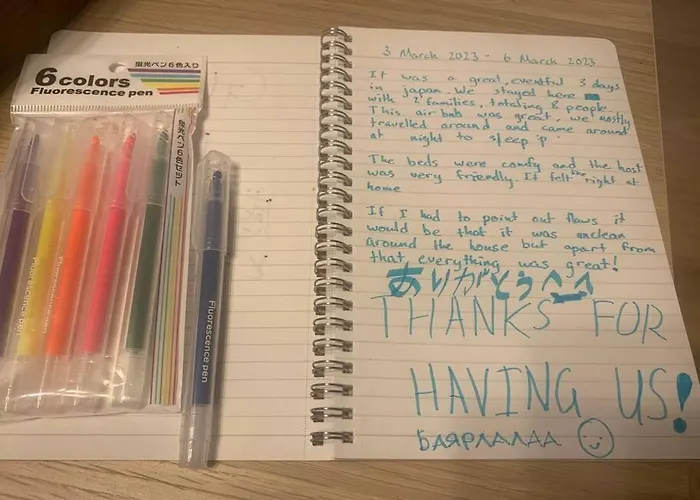 蛍光ペン6色入り
6 colors
Fluorescence pen
蛍光ペン6色セット
Fluorescence pen
Fluorescence pen
Fluorescence pen
3 March 2023 - 6 March 2023
It was a great, eventful 3 days
in japan. We stayed here
with 2 families, totaling 8 people.
This air bnb was great, we mostly
travelled around and came around
at night to sleep :p
The beds were comfy and the host
was very friendly. It felt the right at
home
If I had to point out flaws it
would be that it was unclean
around the house but apart from
that everything was great!
ありがとう^_^
THANKS FOR
HAVING US!
БАЯРЛАЛАА